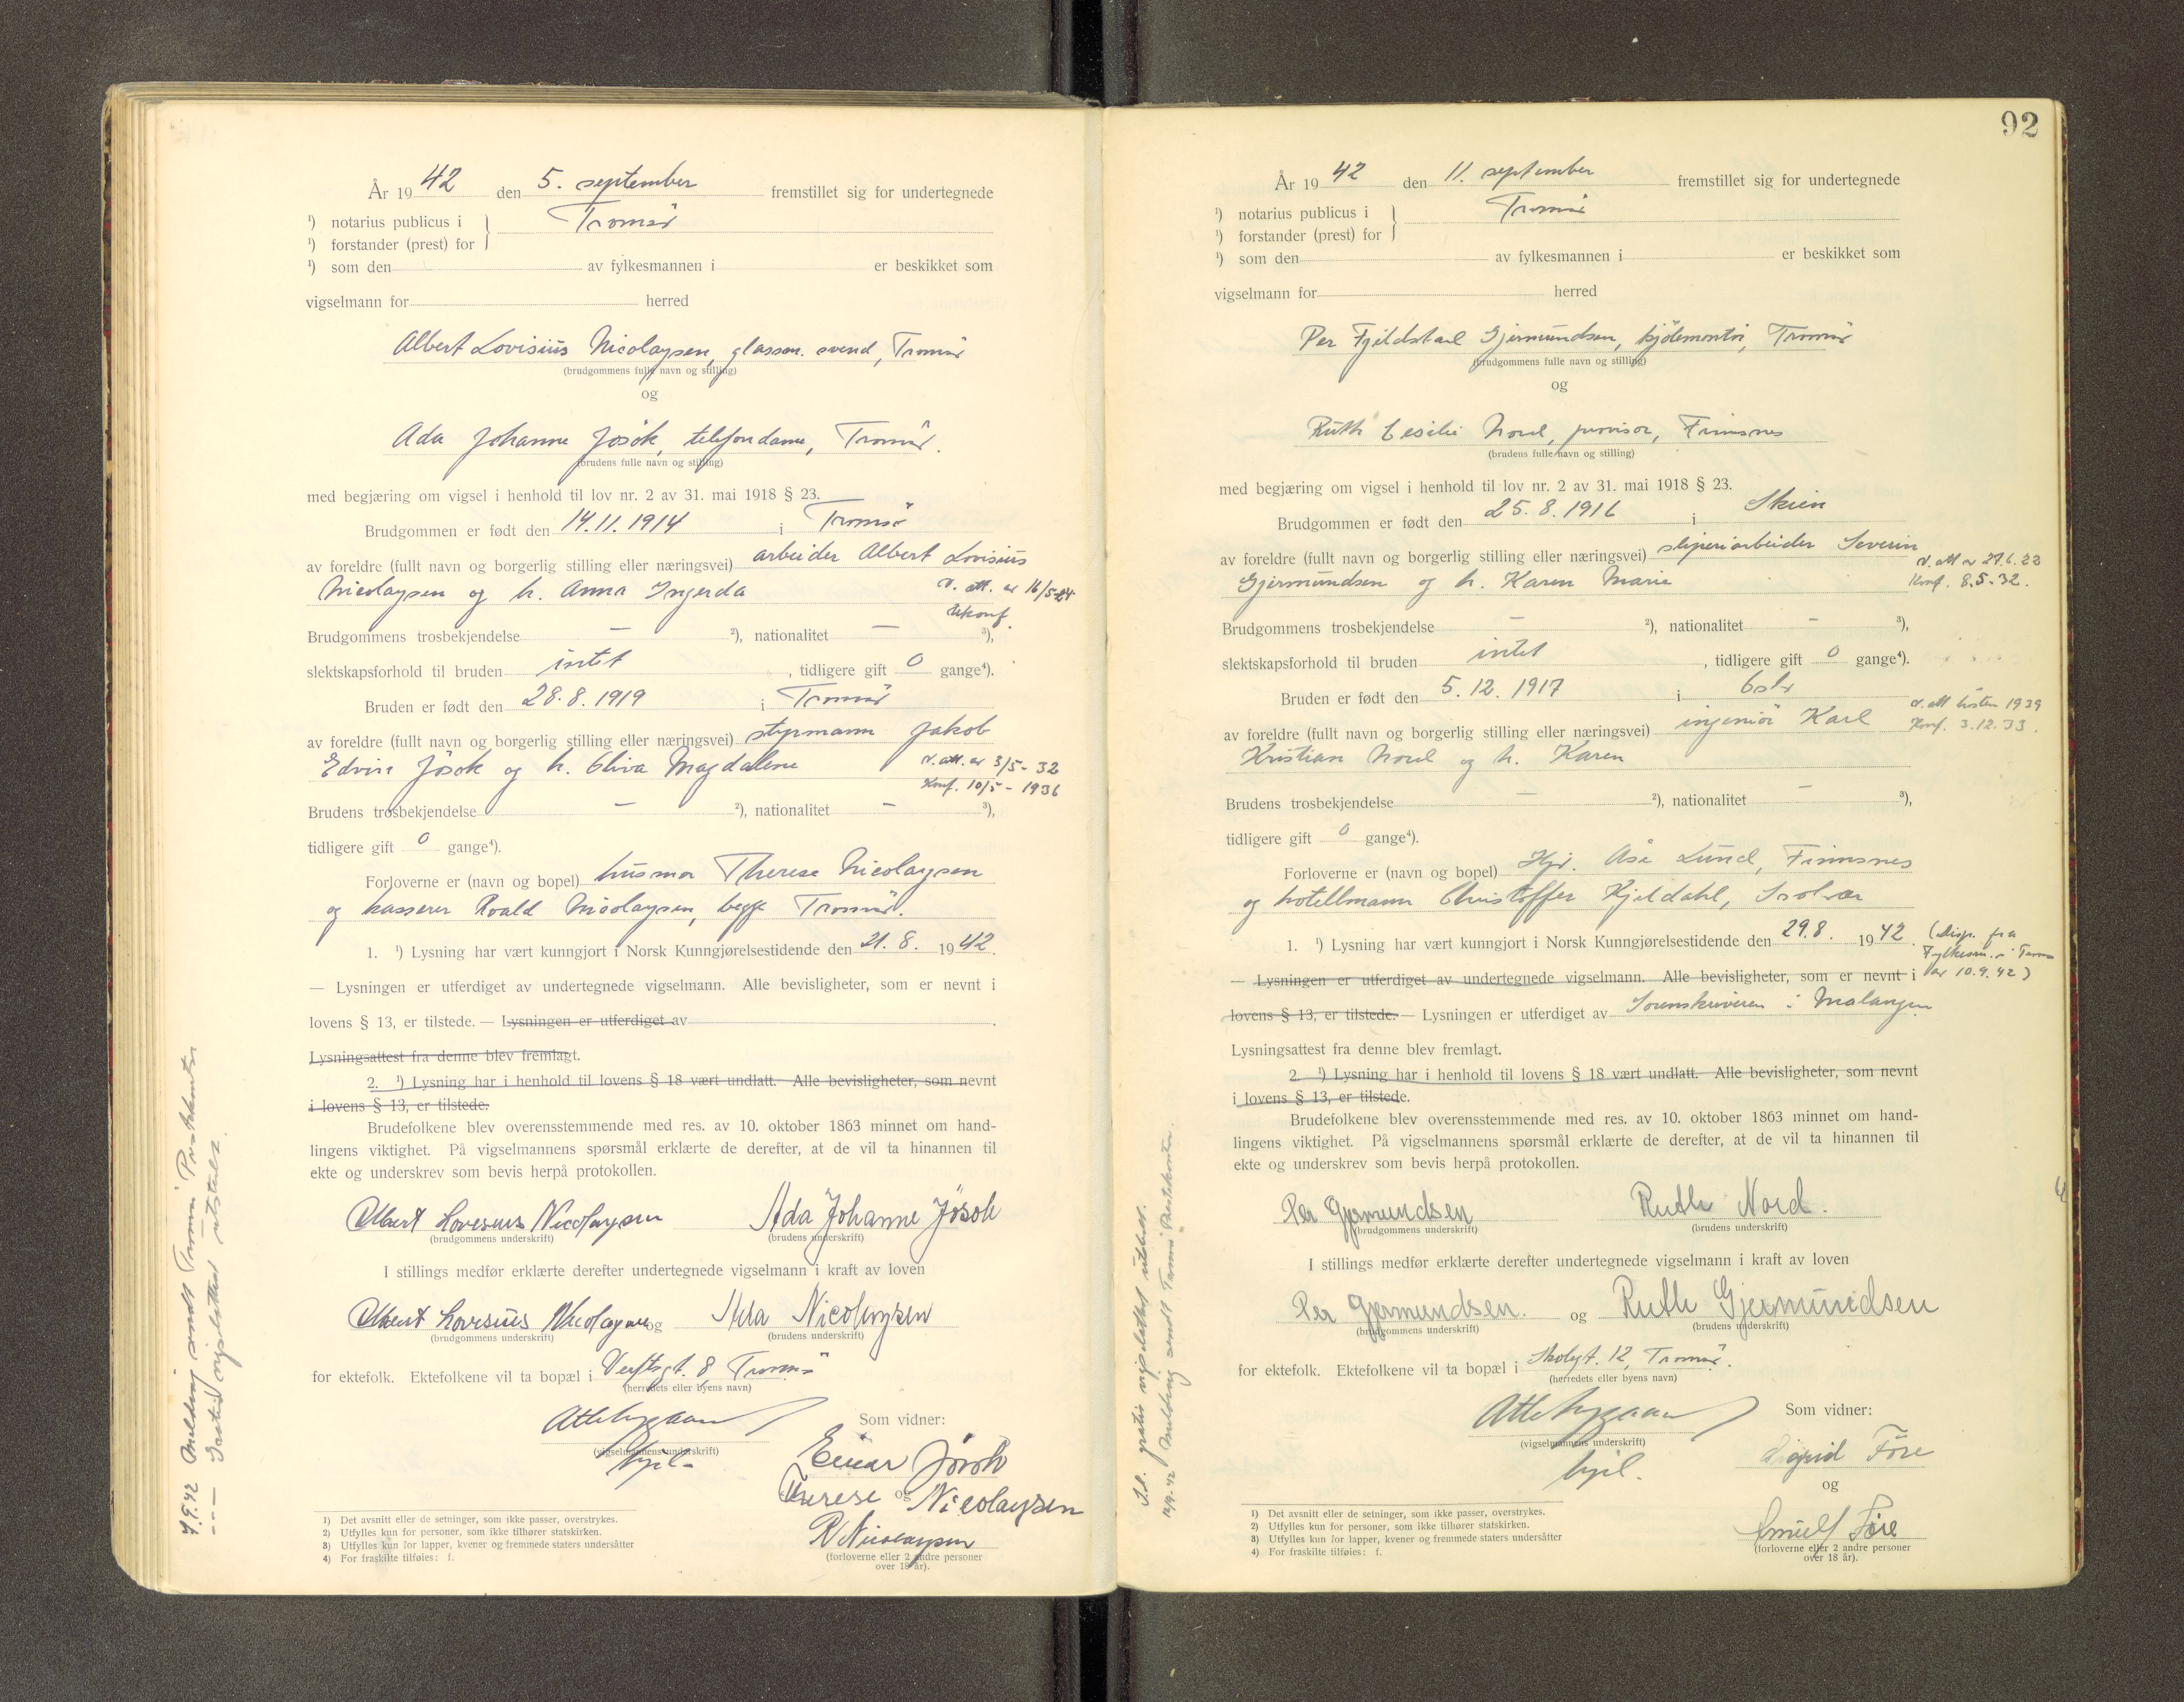 År 19 42 den 5. september fremstillet sig for undertegnede
¹) notarius publicus i } Tromsö
¹) forstander (prest) for
¹) som den av fylkesmannen i er beskikket som
vigselmann for herred
Albert Lovisius Nicolaysen, glassm. svend, Tromsö
(brudgommens fulle navn og stilling)
og
Ada Johanne Jösok, telefondame, Tromsö.
(brudens fulle navn og stilling)
med begjæring om vigsel i henhold til lov nr. 2 av 31. mai 1918 § 23.
Brudgommen er født den 14.11.1914 i Tromsö
av foreldre (fullt navn og borgerlig stilling eller næringsvei) arbeider Albert Lovisius
Nicolaysen og h. Anna Ingerda
v. att. av 16/5-24
Ukonf.
Brudgommens trosbekjendelse — ²), nationalitet — ³),
slektskapsforhold til bruden intet, tidligere gift 0 gange⁴).
Bruden er født den 28.8.1919 i Tromsö
av foreldre (fullt navn og borgerlig stilling eller næringsvei) styrmann Jakob
Edvin Jösok og h. Oliva Magdalene
v. att. av 3/5-32
Konf. 10/5-1936
Brudens trosbekjendelse — ²), nationalitet — ³),
tidligere gift 0 gange⁴).
Forloverne er (navn og bopel) husmor Therese Nicolaysen
og kasserer Roald Nicolaysen, begge Tromsö.
1. ¹) Lysning har vært kunngjort i Norsk Kunngjørelsestidende den 21.8. 1942.
— Lysningen er utferdiget av undertegnede vigselmann. Alle bevisligheter, som er nevnt i
lovens § 13, er tilstede. — Lysningen er utferdiget av .
Lysningsattest fra denne blev fremlagt.
2. ¹) Lysning har i henhold til lovens § 18 vært undlatt. Alle bevisligheter, som nevnt
i lovens § 13, er tilstede.
Brudefolkene blev overensstemmende med res. av 10. oktober 1863 minnet om hand-
lingens viktighet. På vigselmannens spørsmål erklærte de derefter, at de vil ta hinannen til
ekte og underskrev som bevis herpå protokollen.
Albert Lovisius Nicolaysen Ada Johanne Jösok
(brudgommens underskrift) (brudens underskrift)
I stillings medfør erklærte derefter undertegnede vigselmann i kraft av loven
Albert Lovisius Nicolaysen og Ada Nicolaysen
(brudgommens underskrift) (brudens underskrift)
for ektefolk. Ektefolkene vil ta bopæl i Verftsgt. 8, Tromsö
(herredets eller byens navn)
Som vidner:
(vigselmannens underskrift)
Einar Jösok
Therese og Nicolaysen
R Nicolaysen
(forloverne eller 2 andre personer
over 18 år).
1) Det avsnitt eller de setninger, som ikke passer, overstrykes.
2) Utfylles kun for personer, som ikke tilhører statskirken.
3) Utfylles kun for lapper, kvener og fremmede staters undersåtter
4) For fraskilte tilføies: f.
7.9.42 Melding sendt Tromsö Prestekontor
--- Gratis vigselattest utstedt.
92
År 19 42 den 11. september fremstillet sig for undertegnede
¹) notarius publicus i } Tromsö
¹) forstander (prest) for
¹) som den av fylkesmannen i er beskikket som
vigselmann for herred
Per Fjeldstad Gjermundsen, kjölemontör, Tromsö
(brudgommens fulle navn og stilling)
og
Ruth Cesilie Nord, provisor, Finnsnes
(brudens fulle navn og stilling)
med begjæring om vigsel i henhold til lov nr. 2 av 31. mai 1918 § 23.
Brudgommen er født den 25.8.1916 i Skien
av foreldre (fullt navn og borgerlig stilling eller næringsvei) sliperiarbeider Severin
Gjermundsen og h. Karen Marie
Konf. 8.5-32.
Brudgommens trosbekjendelse — ²), nationalitet — ³),
slektskapsforhold til bruden intet, tidligere gift 0 gange⁴).
Bruden er født den 5.12.1917 i Oslo
av foreldre (fullt navn og borgerlig stilling eller næringsvei) ingeniör Karl
Kristian Nord og h. Karen
v. att hösten 1939
Konf. 3.12.33.
Brudens trosbekjendelse — ²), nationalitet — ³),
tidligere gift 0 gange⁴).
Forloverne er (navn og bopel) Åse Lund, Finnsnes
og hotellmann Christoffer Kjeldahl, Svolvær
1. ¹) Lysning har vært kunngjort i Norsk Kunngjørelsestidende den 29.8. 1942.
(Disp. fra
Fylkesm. i Troms
av 10.9.42)
— Lysningen er utferdiget av undertegnede vigselmann. Alle bevisligheter, som er nevnt i
lovens § 13, er tilstede. — Lysningen er utferdiget av Sorenskriveren i Malangen
Lysningsattest fra denne blev fremlagt.
2. ¹) Lysning har i henhold til lovens § 18 vært undlatt. Alle bevisligheter, som nevnt
i lovens § 13, er tilstede.
Brudefolkene blev overensstemmende med res. av 10. oktober 1863 minnet om hand-
lingens viktighet. På vigselmannens spørsmål erklærte de derefter, at de vil ta hinannen til
ekte og underskrev som bevis herpå protokollen.
Per Gjermundsen Ruth Nord.
(brudgommens underskrift) (brudens underskrift)
I stillings medfør erklærte derefter undertegnede vigselmann i kraft av loven
Per Gjermundsen. og Ruth Gjermundsen
(brudgommens underskrift) (brudens underskrift)
for ektefolk. Ektefolkene vil ta bopæl i Skolegt. 12, Tromsö.
(herredets eller byens navn)
Som vidner:
(vigselmannens underskrift)
SigridFöre
og
Före
(forloverne eller 2 andre personer
over 18 år).
1) Det avsnitt eller de setninger, som ikke passer, overstrykes.
2) Utfylles kun for personer, som ikke tilhører statskirken.
3) Utfylles kun for lapper, kvener og fremmede staters undersåtter
4) For fraskilte tilføies: f.
S.d. gratis vigselattest utstedt.
12/9-42 Melding sendt Tromsö Prestekontor.